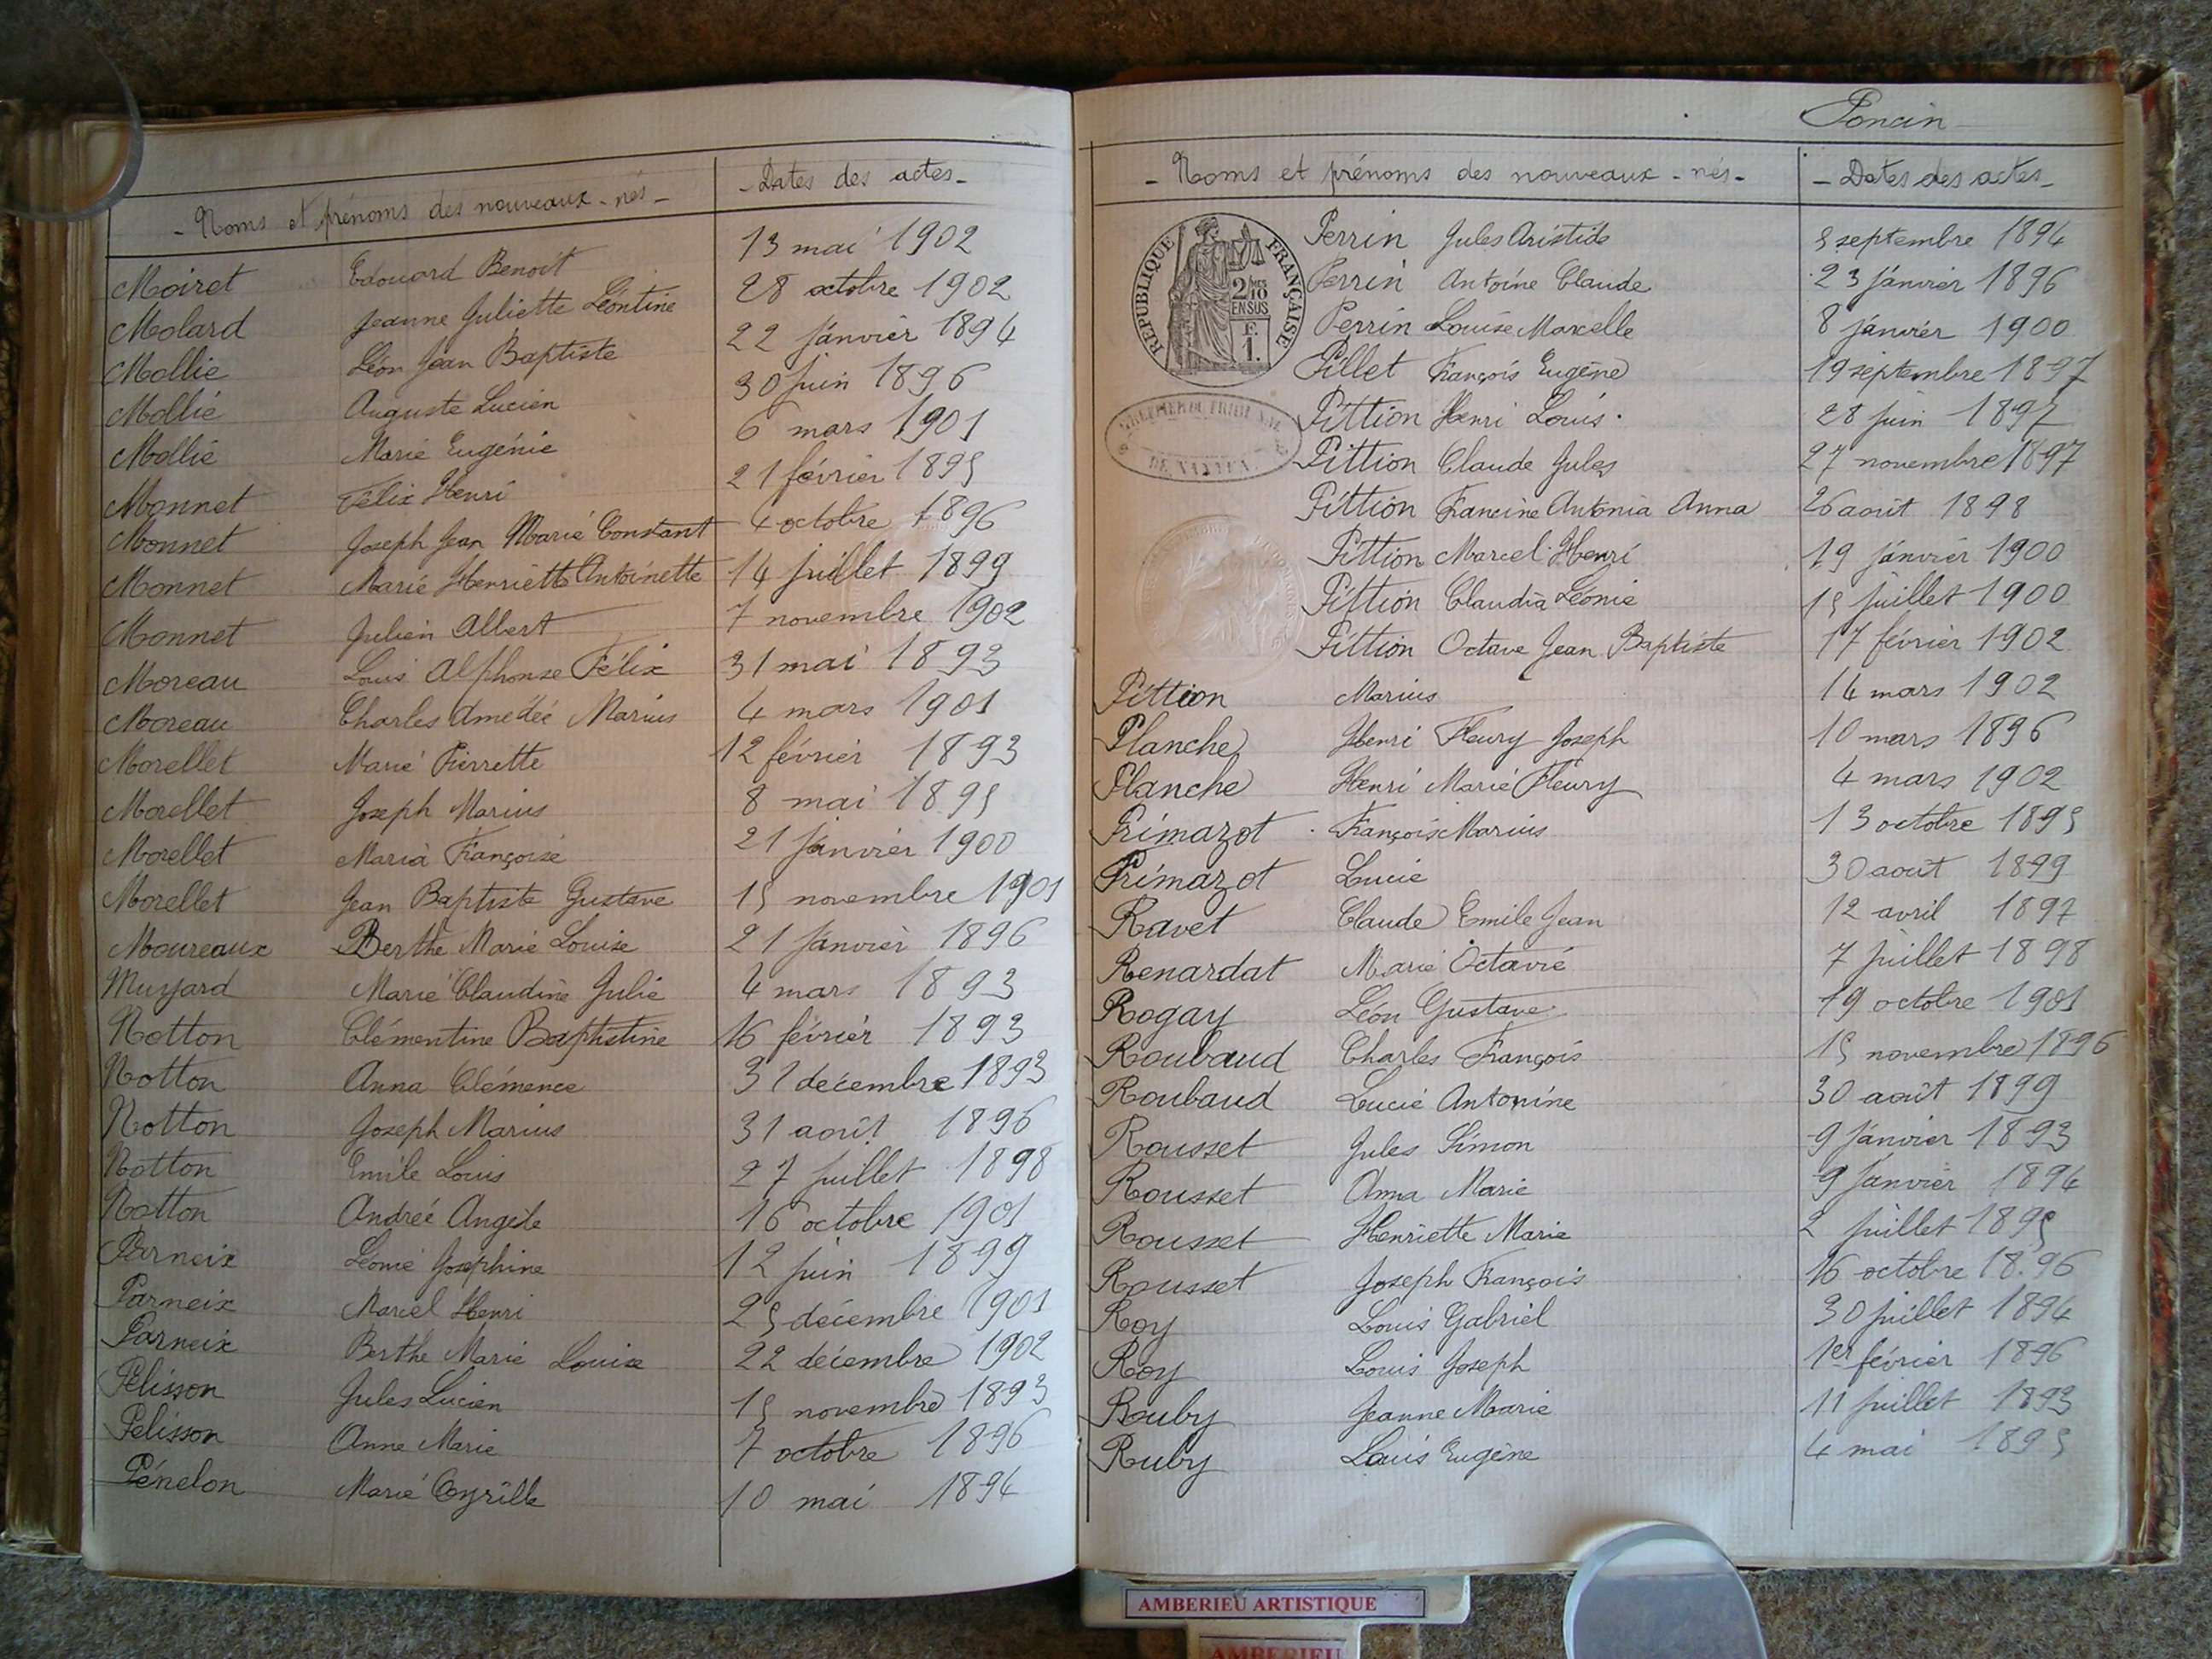 - Noms et prénoms des nouveaux-nés -  - Dates des actes -
Moiret Edouard Benoit 13 mai 1902
Molard Jeanne Juliette Léontine 28 octobre 1902
Mollie Léon Jean Baptiste 22 janvier 1894
Mollié Auguste Lucien 30 juin 1896
Mollié Marie Eugénie 6 mars 1901
Monnet Félix Henri 21 février 1895
Monnet Joseph Jean Marie Constant 4 octobre 1896
Monnet Marie Henriette Antoinette 14 juillet 1899
Monnet Julien Albert 7 novembre 1902
Moreau Louis Alphonse Félix 31 mai 1893
Moreau Charles Amedée Marius 4 mars 1901
Morellet Marie Pierrette 12 février 1893
Morellet Joseph Marius 8 mai 1895
Morellet Maria Françoise 21 janvier 1900
Morellet Jean Baptiste Gustave 15 novembre 1901
Moureaux Berthe Marie Louise 21 janvier 1896
Muyard Marie Claudine Julie 4 mars 1893
Notton Clémentine Baptistine 16 février 1893
Notton Anna Clémence 31 décembre 1893
Notton Joseph Marius 31 août 1896
Notton Emile Louis 27 juillet 1898
Notton Andrée Angèle 16 octobre 1901
Parneix Léonie Joséphine 12 juin 1899
Parneix Marcel Henri 25 décembre 1901
Parneix Berthe Marie Louise 22 décembre 1902
Pélisson Jules Lucien 15 novembre 1893
Pelisson Anne Marie 7 octobre 1896
Pénelon Marie Cyrille 10 mai 1894
Poncin
- Noms et prénoms des nouveaux-nés -  - Dates des actes -
REPUBLIQUE FRANÇAISE
2/10 EN SUS
F. 1.
Perrin Jules Aristide septembre 1894
Perrin Antoine Claude 23 janvier 1896
Perrin Louise Marcelle 8 janvier 1900
Pillet François Eugène 19 septembre 1897
Pittion Henri Louis 28 juin 1897
Pittion Claude Jules 27 novembre 1897
Pittion Francine Antonia Anna 26 août 1898
Pittion Marcel Henri 19 janvier 1900
Pittion Claudia Léonie 15 juillet 1900
Pittion Octave Jean Baptiste 17 février 1902
Pittion Marius 14 mars 1902
Planche Henri Fleury Joseph 10 mars 1896
Planche Henri Marie Fleury 4 mars 1902
Primazot François Marius 13 octobre 1895
Primazot Lucie 30 août 1899
Ravet Claude Emile Jean 12 avril 1897
Renardat Marie Octavie 7 juillet 1898
Rogay Léon Gustave 19 octobre 1901
Roubaud Charles François 15 novembre 1896
Roubaud Lucie Antonine 30 août 1899
Rousset Jules Simon 9 janvier 1893
Rousset Anna Marie 9 janvier 1894
Rousset Henriette Marie 2 juillet 1895
Rousset Joseph François 16 octobre 1896
Roy Louis Gabriel 30 juillet 1894
Roy Louis Joseph 1er février 1896
Rouby Jeanne Marie 11 juillet 1893
Ruby Louis Eugène 4 mai 1895
AMBERIEU ARTISTIQUE
AMBERIEU